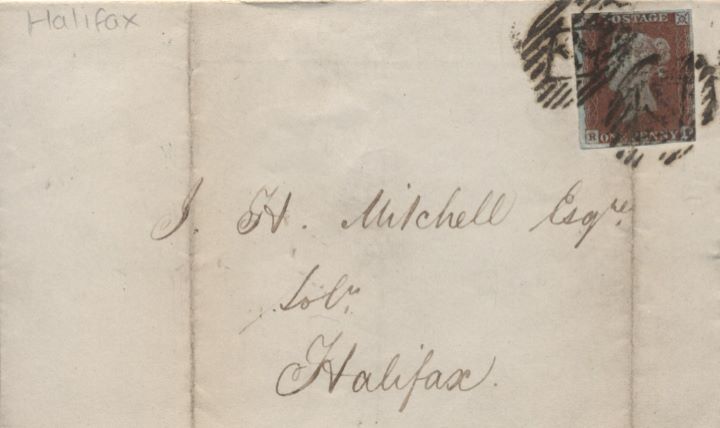 Halifax
POSTAGE
R ONE PENNY
J. H. Mitchell Esqre.
Solr
Halifax.